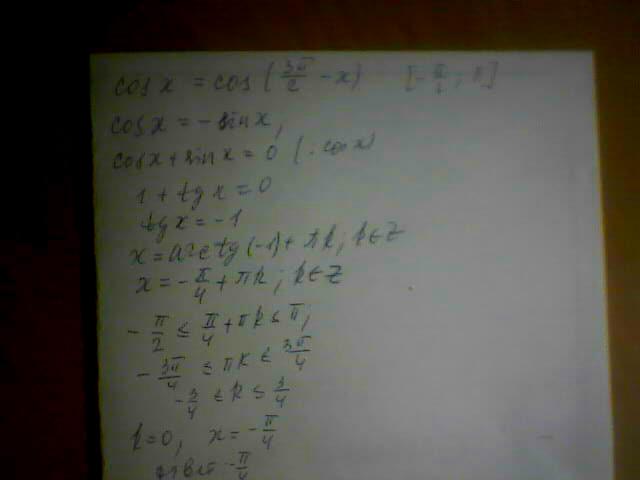 cos x = cos (3π/2 - x) [-π/2; π]
cos x = - sin x,
cos x + sin x = 0 (: cos x)
1 + tg x = 0
tg x = -1
x = arctg (-1) + πk; k∈Z
x = -π/4 + πk; k∈Z
-π/2 ≤ π/4 + πk ≤ π;
-3π/4 ≤ πk ≤ 3π/4
-3/4 ≤ k ≤ 3/4
k=0, x = -π/4
ответ: -π/4